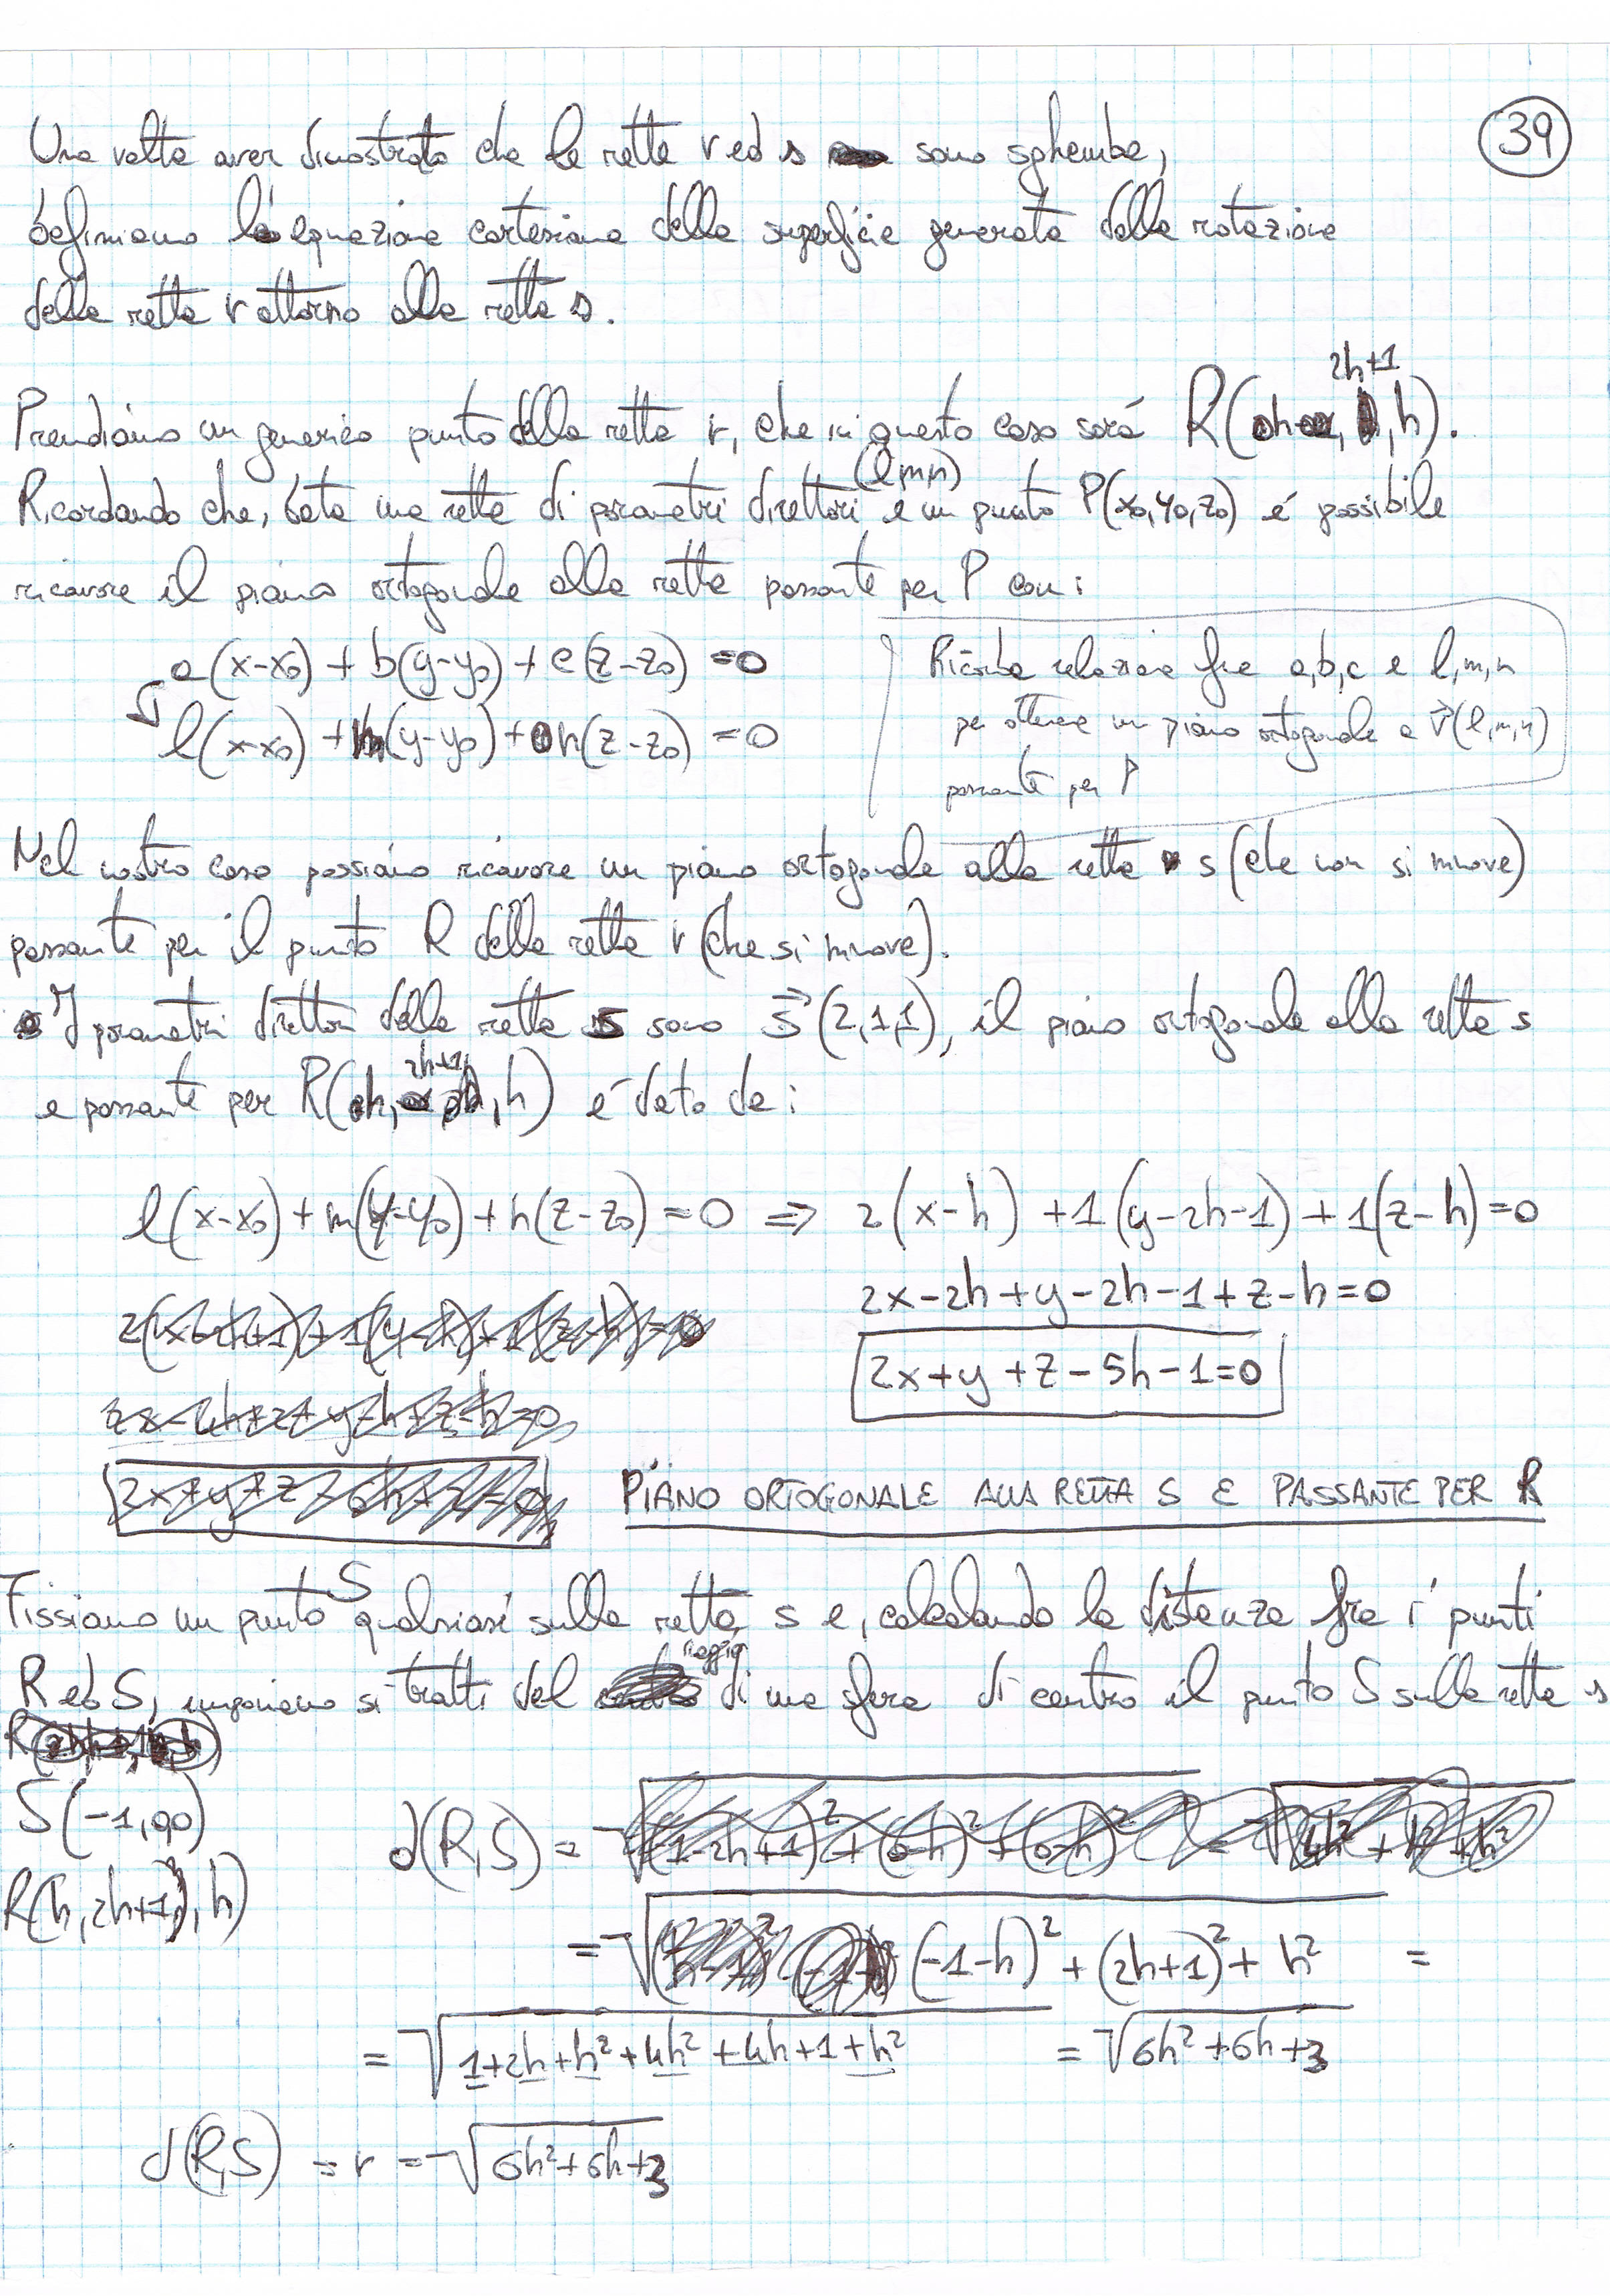 39
Una volta aver dimostrato che le rette r ed s sono sghembe,
definiamo l'equazione cartesiana della superficie generata dalla rotazione
della retta r attorno alla retta s.
2h+1
Prendiamo un generico punto della retta r, che in questo caso sará R(h, , h).
(l,m,n)
Ricordando che, data una retta di parametri direttori e un punto P(x₀,y₀,z₀) é possibile
ricavare il piano ortogonale alla retta passante per P con:
a(x-x₀) + b(y-y₀) + c(z-z₀) =0
l(x-x₀) + m(y-y₀) + n(z-z₀) =0
Ricorda relazione fra a,b,c e l,m,n
per ottenere un piano ortogonale a v⃗(l,m,n)
passante per P
Nel nostro caso possiamo ricavare un piano ortogonale alla retta s (che non si muove)
passante per il punto R della retta r (che si muove).
I parametri direttori della retta s sono s⃗(2,1,1), il piano ortogonale alla retta s
2h+1
e passante per R(h, , h) é dato da:
l(x-x₀) + m(y-y₀) + n(z-z₀) =0 ⇒ 2(x-h) +1(y-2h-1) +1(z-h)=0
2x-2h+y-2h-1+z-h=0
2x+y+z-5h-1=0
PIANO ORTOGONALE ALLA RETTA S E PASSANTE PER R
Fissiamo un punto S qualsiasi sulla retta s e, calcolando la distanza fra i punti
R ed S, imponiamo si tratti del raggio di una sfera di centro il punto S sulla retta s
S(-1,0,0)
R(h,2h+1,h)
d(R,S) =
= √((-1-h)² + (2h+1)² + h²) =
= √(1+2h+h²+4h²+4h+1+h²) = √(6h²+6h+3
d(R,S) = r = √(6h²+6h+3